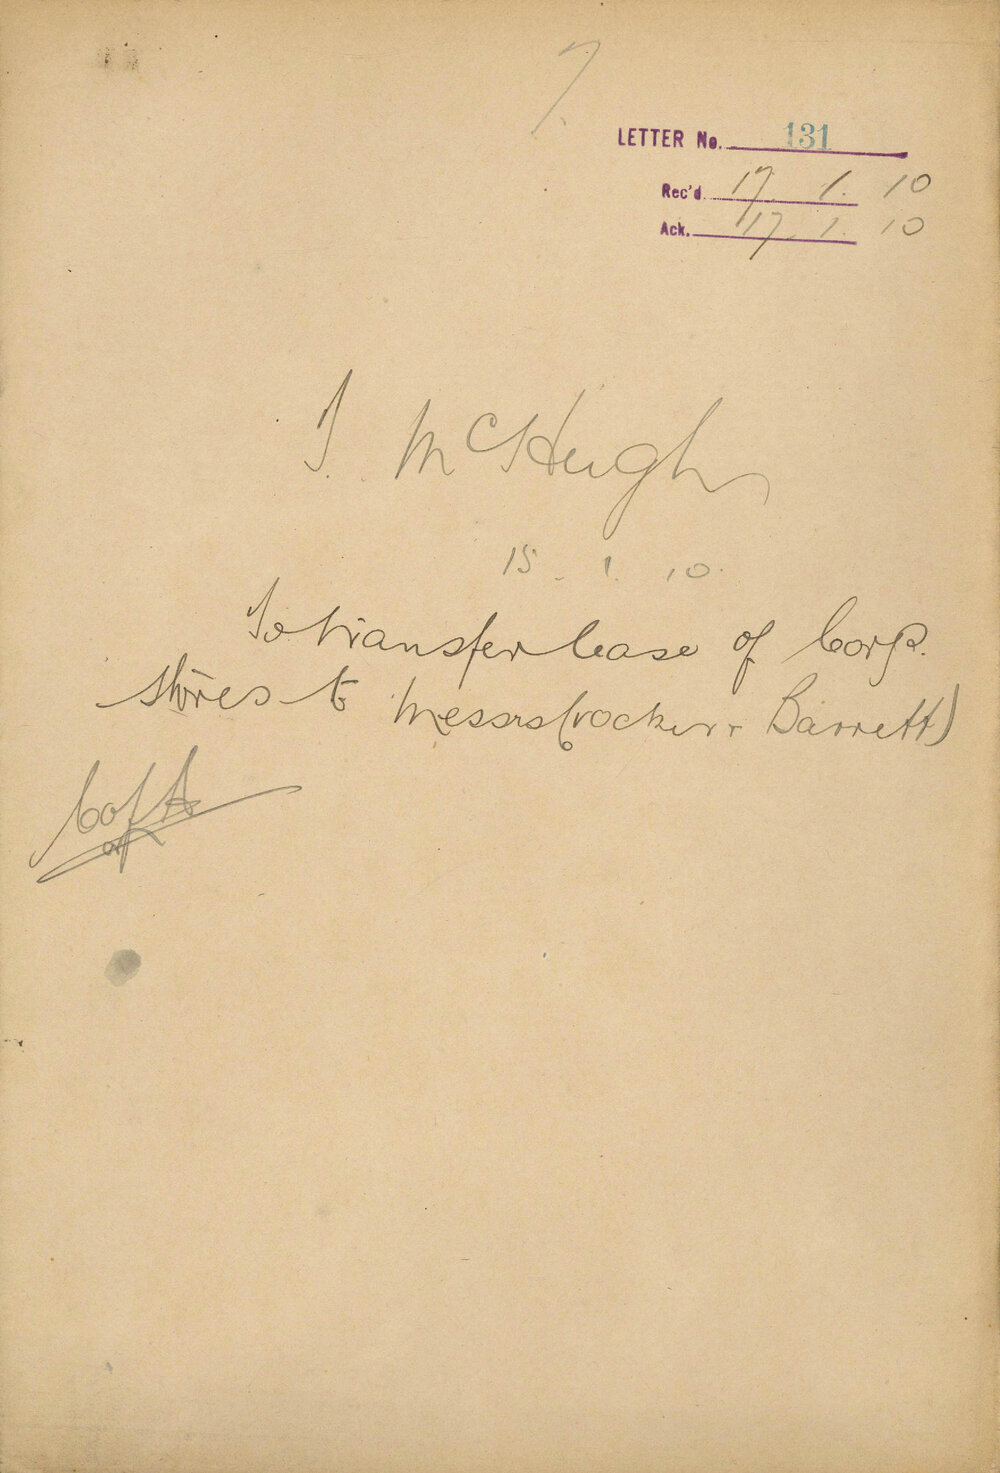 7.
LETTER No. 131
Rec'd 17. 1. 10
Ack. 17. 1. 10
T. McHugh
15. 1. 10.
To transfer lease of Corp.
stores to Messrs Crocker + Barrett)